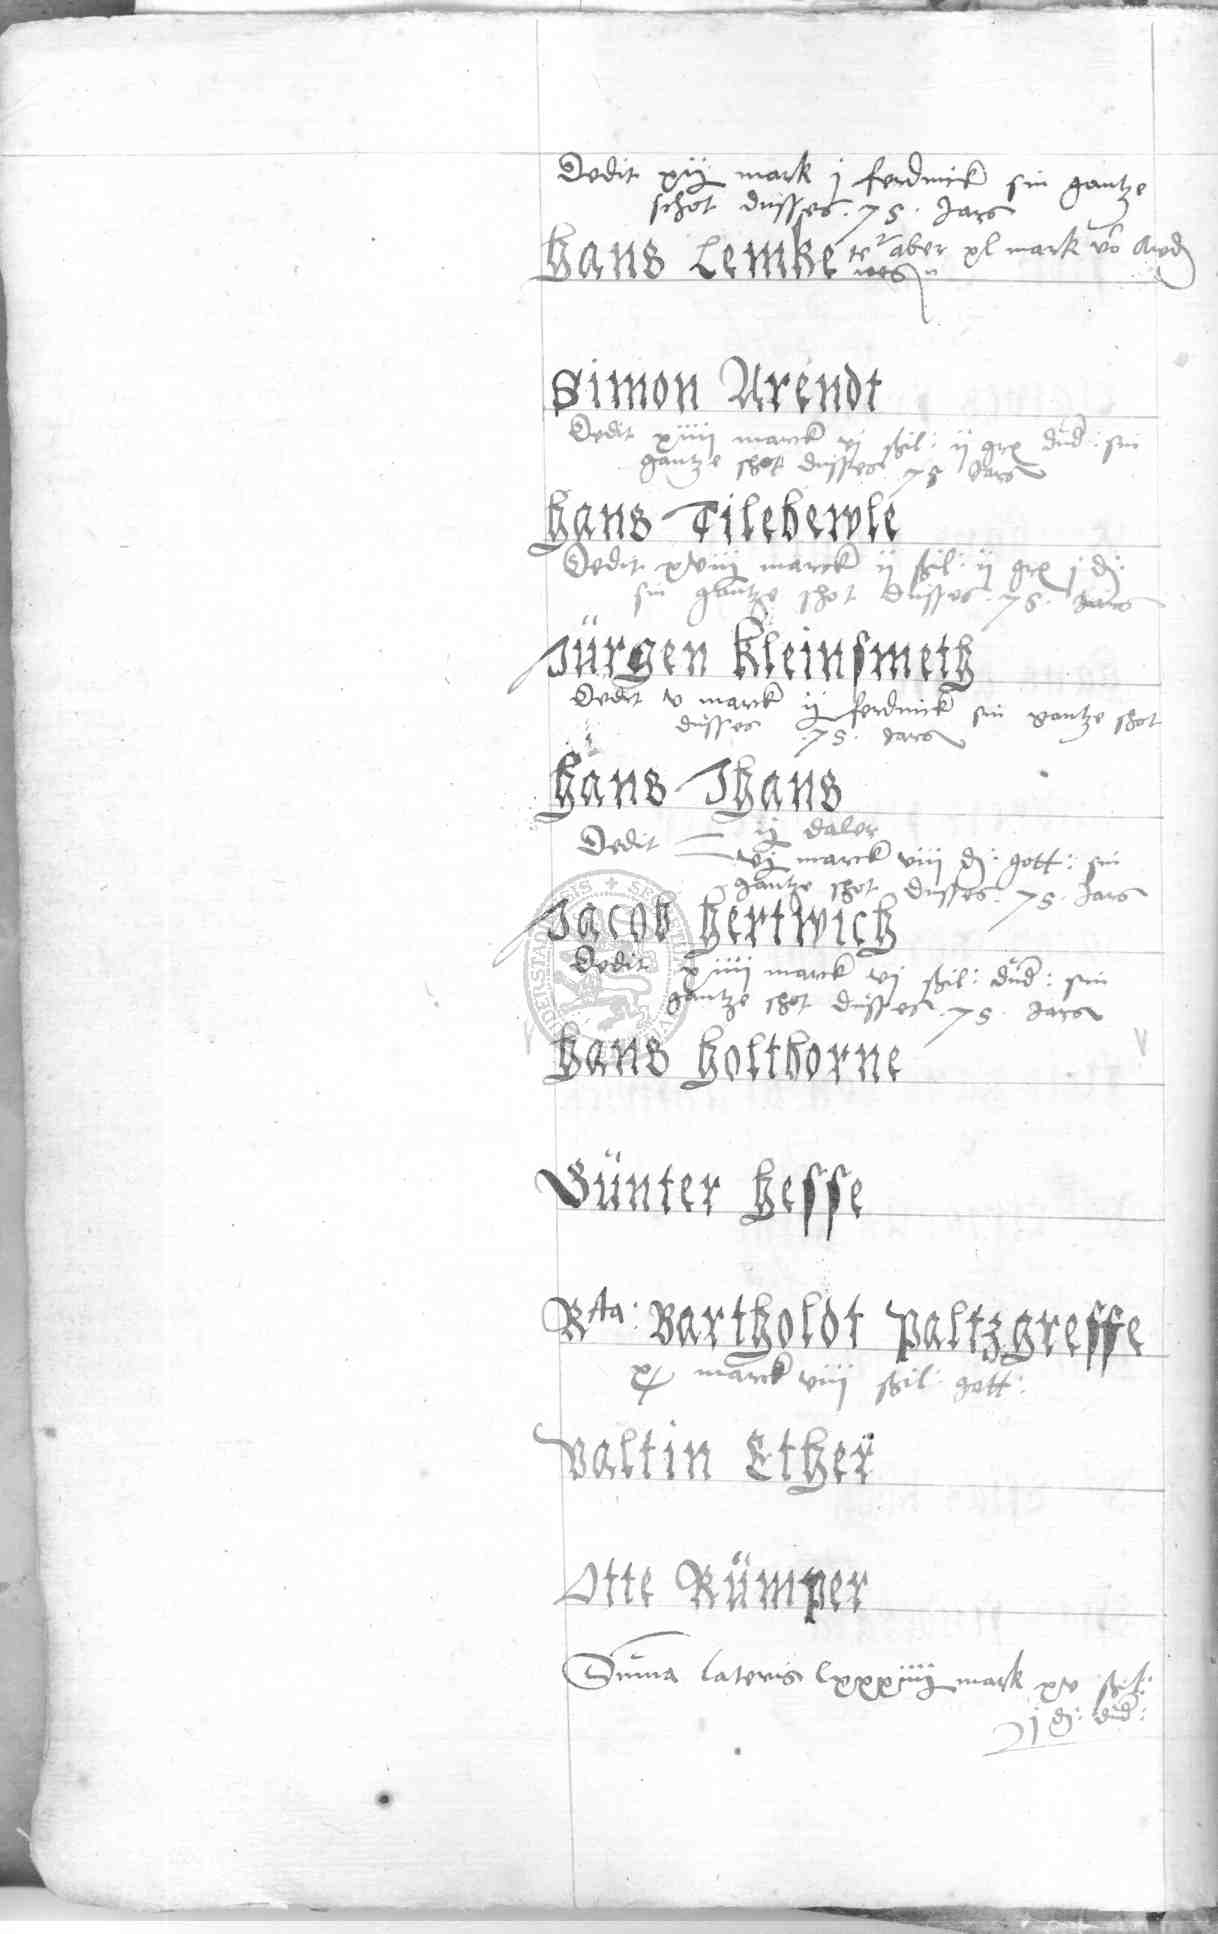 Dedit xij mark j ferdinck sin gantze
schot dusses 75 Jars
Hans Lemke te aber xl mark vo
Simon Arendt
Dedit xiiii marck vj shil: ij gr dud: sin
gantze schot dusses 75 Jars
Hans Tilebewle
Dedit xviii marck ij shil: ij gr j d:
sin gantze schot dusses 75 Jars
Jürgen Kleinsmeth
Dedit v marck ij ferdinck sin gantze schot
dusses 75 Jars
Hans Jhans
ij daler
Dedit vj marck viii d: gott: sin
gantze schot dusses 75 Jars
Jacob Hertwich
Dedit xiiii marck vj shil: dud: sin
gantze schot dusses 75 Jars
Hans Holthorne
Günter Hesse
Rta: Bartholdt Paltzgreffe
x marck viii shil: gott:
Valtin Ether
Otte Rümper
Suma lateris lxxxiiij mark xv shil:
j d: dud: